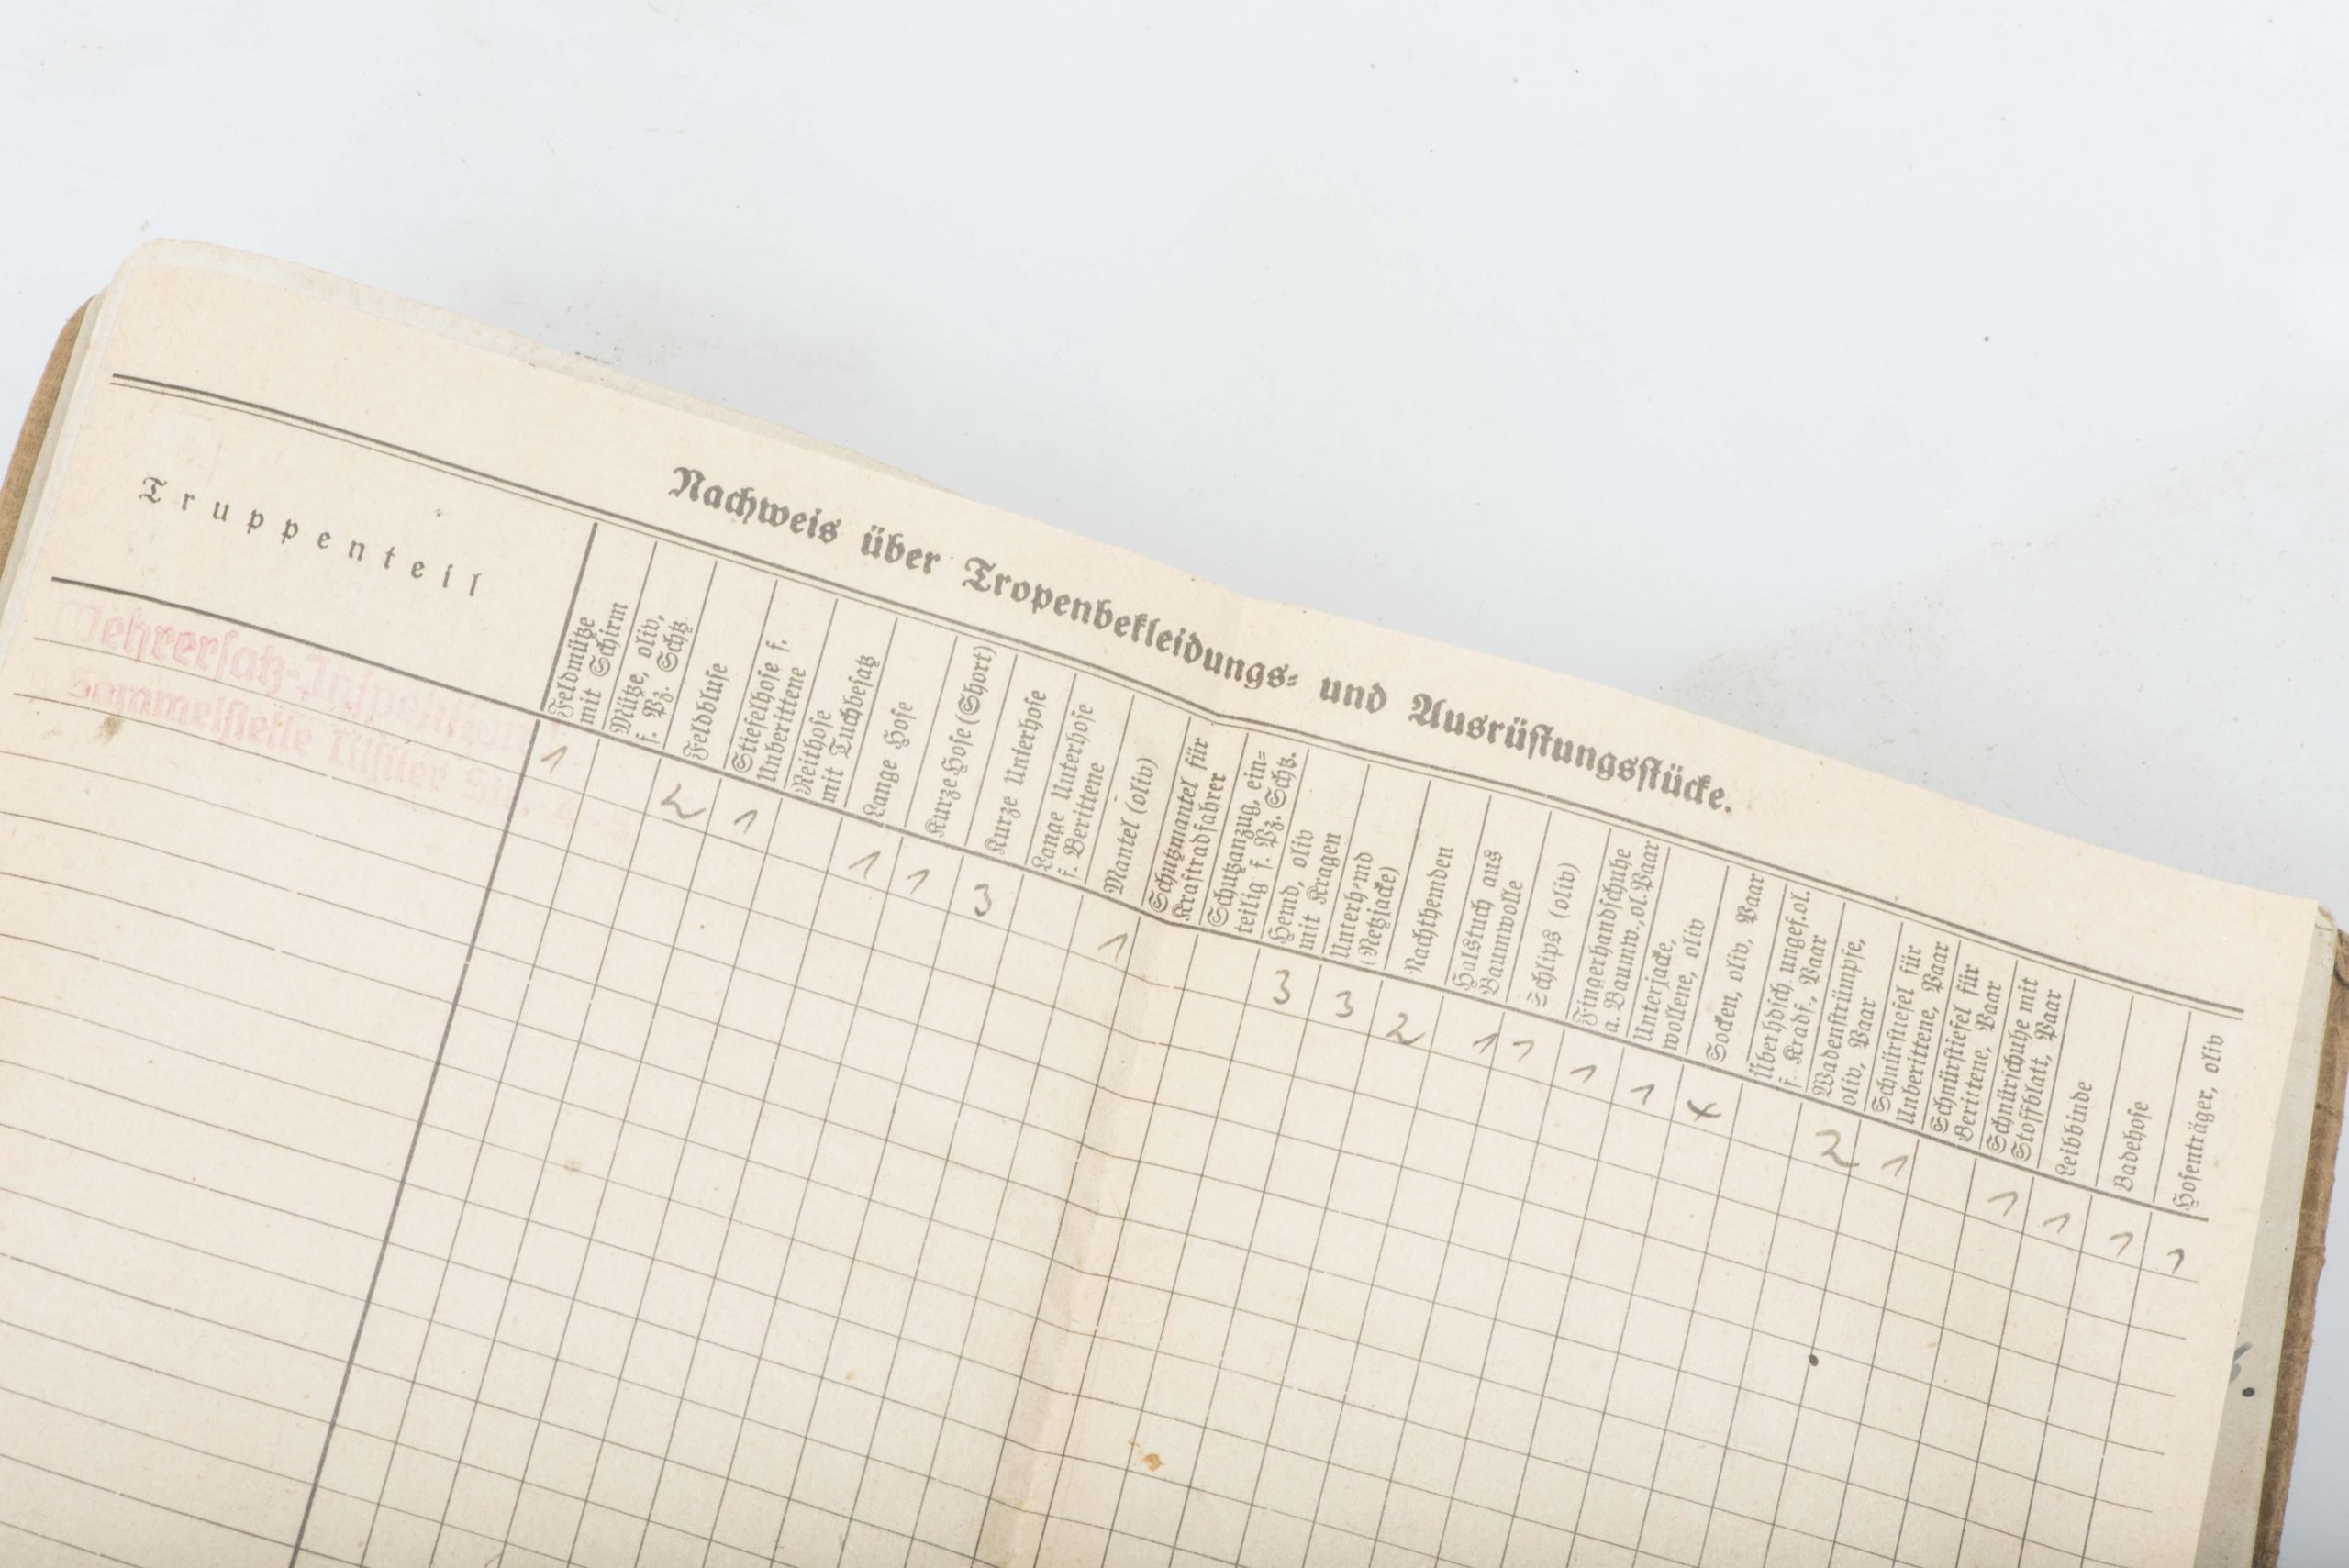 Nachweis über Tropenbekleidungs- und Ausrüstungsstücke.
Truppenteil
Feldmütze
mit Schirm
Mütze, oliv,
f. Pz. Schtz.
Feldbluse
Stiefelhose f.
Unberittene
Reithose
mit Tuchbesatz
Lange Hose
Kurze Hose (Short)
Kurze Unterhose
Lange Unterhose
f. Berittene
Mantel (oliv)
Schutzmantel für
Kraftradfahrer
Schutzanzug, ein-
teilig f. Pz. Schtz.
Hemd, oliv
mit Kragen
Unterhemd
(Netzjacke)
Nachthemden
Halstuch aus
Baumwolle
Schlips (oliv)
Fingerhandschuhe
a. Baumw., ol. Paar
Unterjacke,
wollene, oliv
Socken, oliv, Paar
Überhdsch ungef. ol.
f. Kradf., Paar
Wadenstrümpfe,
oliv, Paar
Schnürstiefel für
Unberittene, Paar
Schnürstiefel für
Berittene, Paar
Schnürschuhe mit
Stoffblatt, Paar
Leibbinde
Badehose
Hosenträger, oliv
Wehrersatz-Inspektion
Sammelstelle
1 2 1 1 1 3 1 3 3 2 1 1 1 1 4 2 1 1 1 1 1